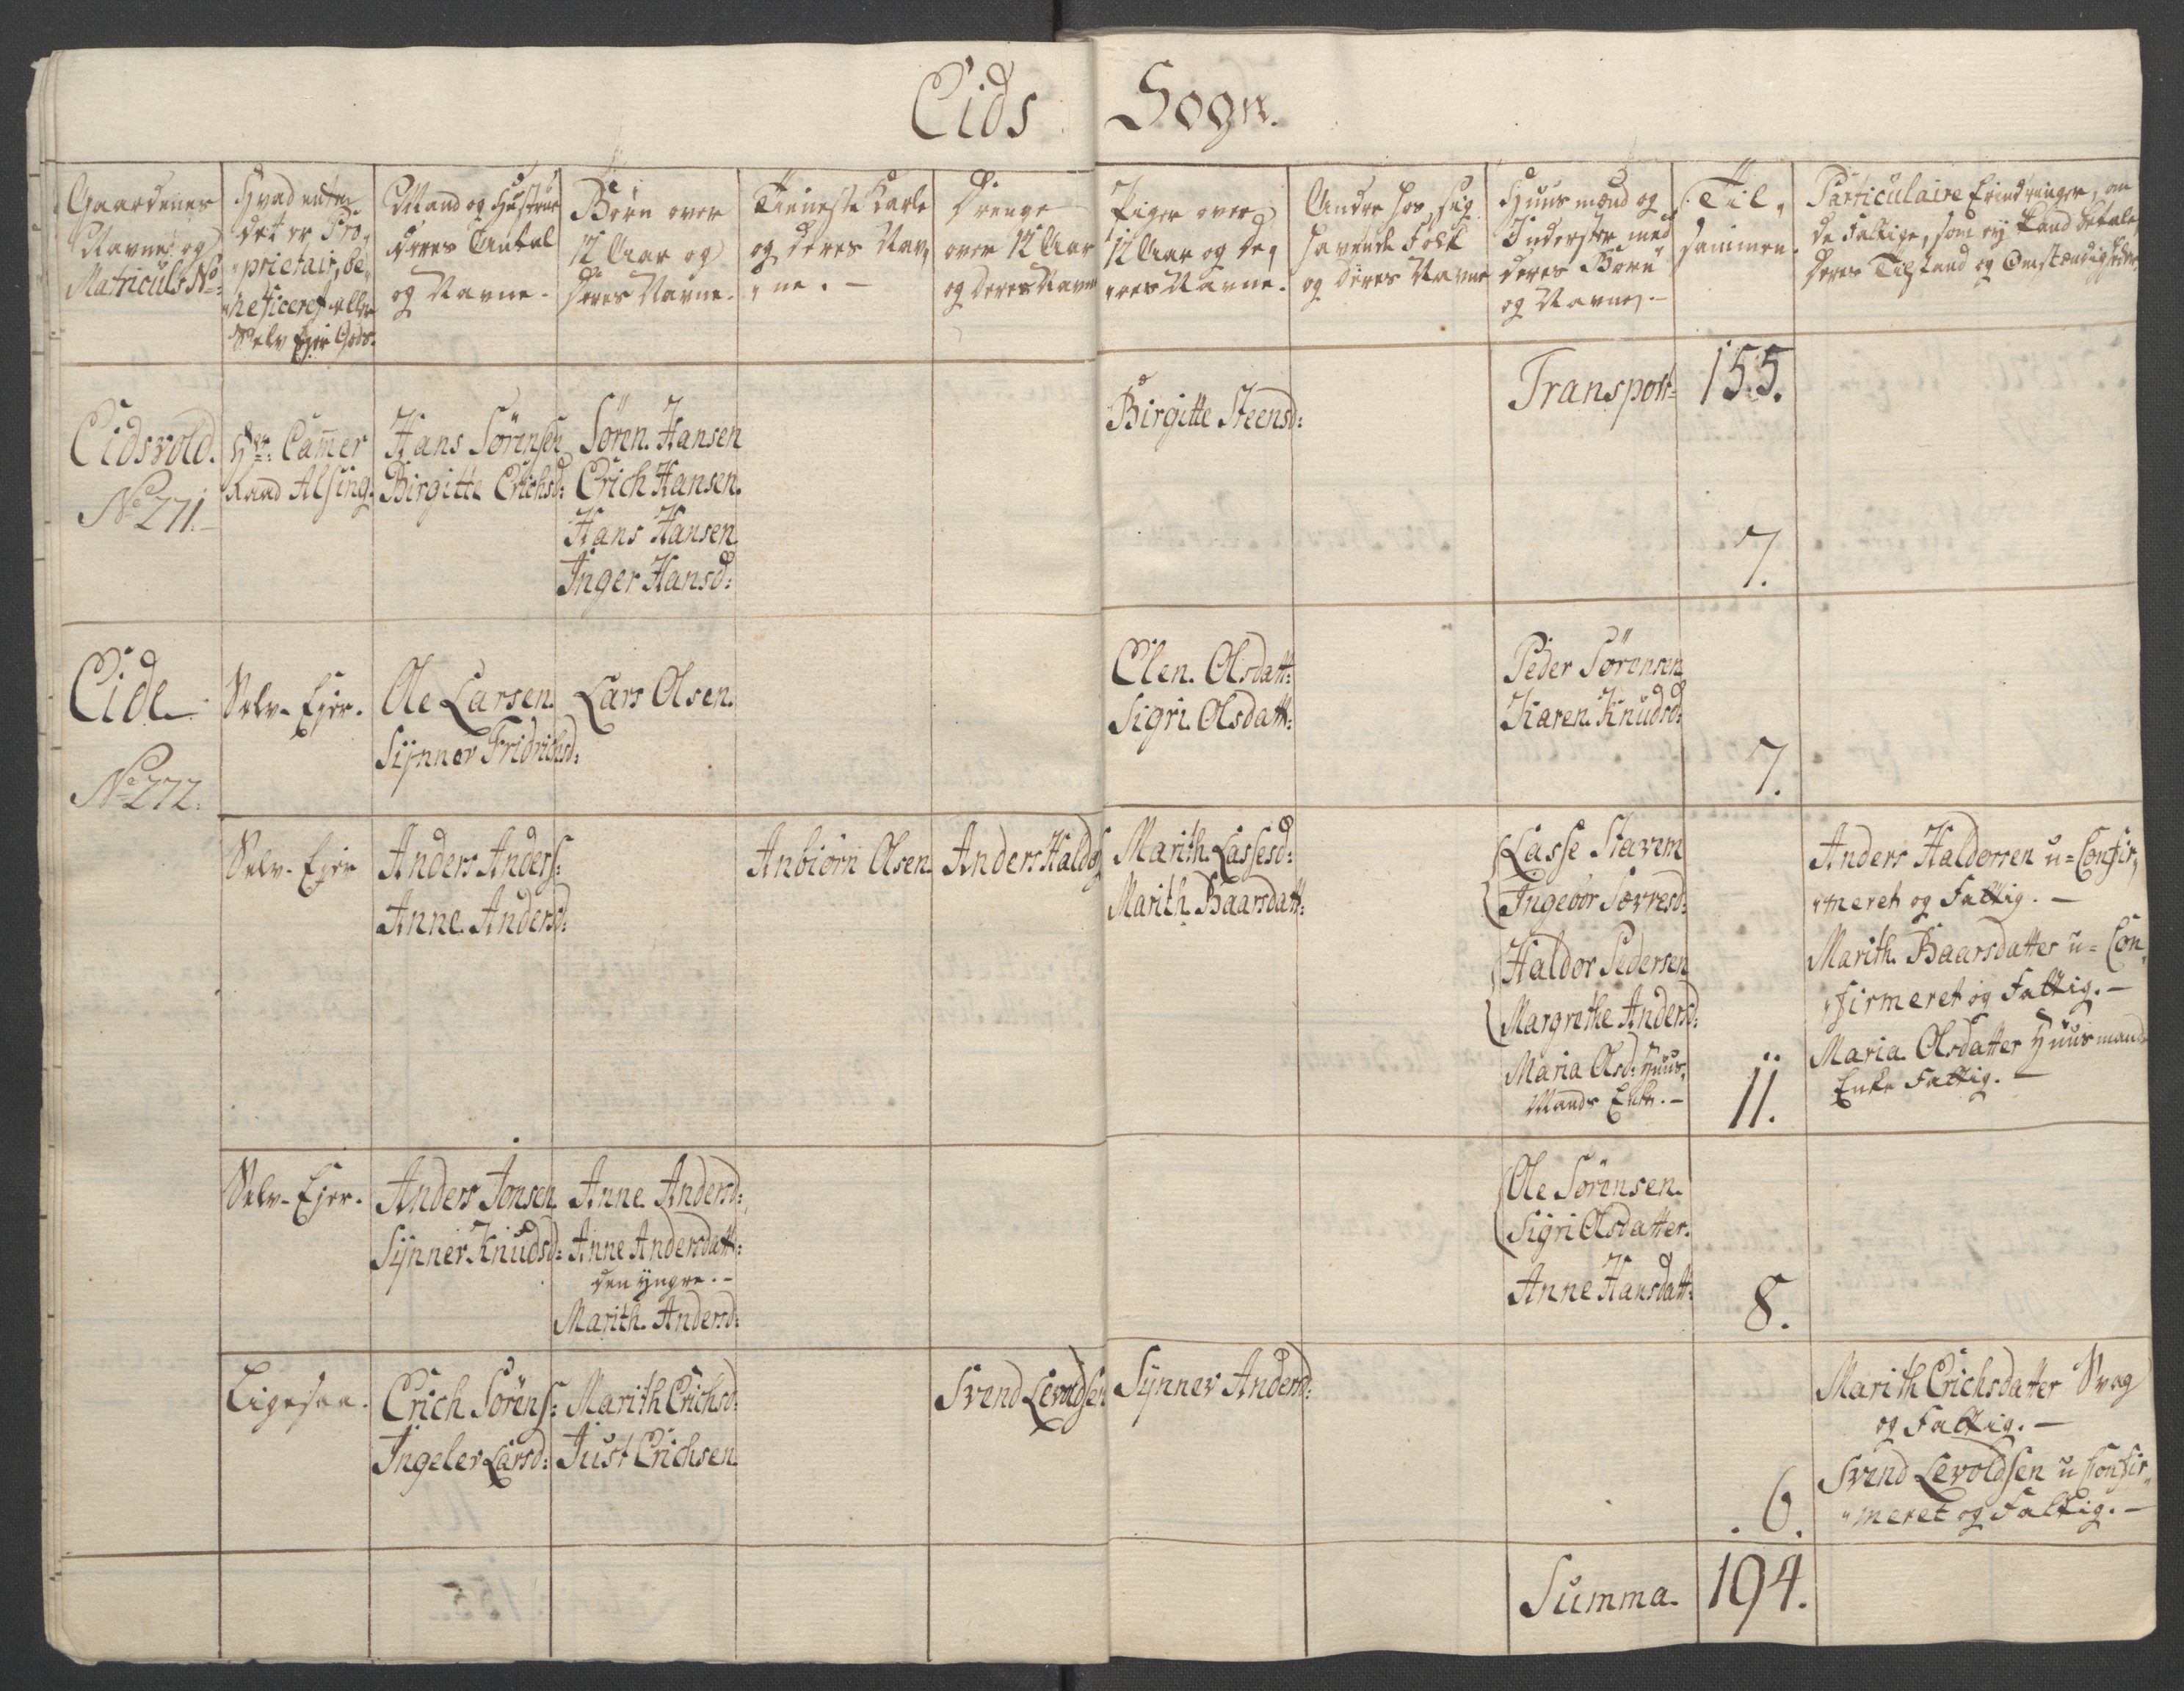 Eids Sogn.
Gaardenes
Navne og
Matriculs No:
Hvad enten
det er Pro,
"prietair, be,
"neficeret eller
Selv Ejer Gods.
Mand og Hustrue
deres Antal
og Navne.
Børn over
12 Aar og
deres Navne.
Tieneste Karle
og deres Nav,
"ne. -
Drenge
over 12 Aar
og deres Navne
Piger over
12 Aar og de,
"res Navne.
Andre hos sig
havende Folk
og deres Navne
Huusmænd og
Inderster med
deres Børn
og Navne. -
Til,
sammen.
Particulaire Erindringer, om
de Fattige, som ey kand betale,
deres Tilstand og Omstændigheder.
Transport=
155.
Eidsvold.
No 271.-
Hr: Cammer
Raad Alsing.
Hans Sørensen
Birgitte Erichsd:
Søren Hansen
Erich Hansen.
Hans Hansen
Inger Hansd:
Birgitte Steensd:
7.
Eide.
No 272.
Selv-Ejer.
Ole Larsen.
Synnev Fridrichsd:
Lars Olsen.
Elen Olsdatt:
Sigri Olsdatt:
Peder Sørensen
Karen Knudsd:
7.
Selv-Ejer
Anders Anders:
Anne Andersd:
Anbiørn Olsen.
Anders Haldors:
Marith Lassesd:
Marith Baarsdatt:
Lasse Stavem
Ingebor Sævresd:
Haldor Pedersen
Margrethe Andersd:
Maria Olsd: Huus,
Mands Enke. -
11.
Anders Haldorsen u=Confir,
"meret og Fattig. -
Marith Baarsdatter u=Con,
"firmeret og Fattig. -
Maria Olsdatter Huusmands
Enke Fattig. -
Selv-Ejer.
Anders Jonsen
Synnev Knudsd:
Anne Andersd:
Anne Andersdatt:
den yngre. -
Marith Andersd:
Ole Sørensen.
Sigri Olsdatter.
Anne Hansdatt:
8.
Ligesaa.
Erich Sørens:
Ingeler Larsd:
Marith Erichsd:
Just Erichsen
Svend Levoldsen
Synnev Andersd:
6.
Marith Erichsdatter Svag
og Fattig. -
Svend Levoldsen u Confir,
"meret og Fattig. -
Summa.
194.